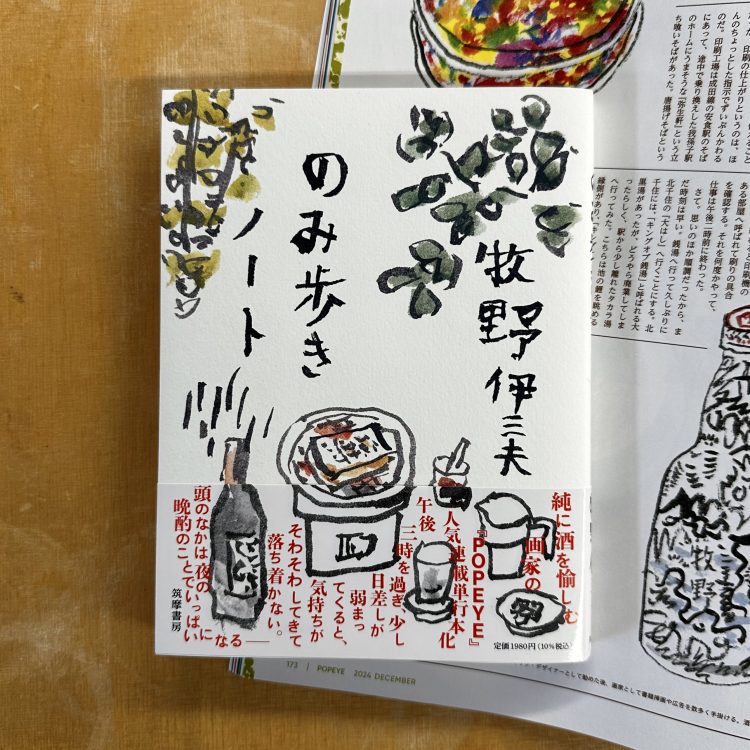 牧野伊三夫
のみ歩き
ノート
純に酒を愉しむ
画家の
『POPEYE』
人気連載単行本化
午後三時を過ぎ、少し
日差しが
弱まっ
てくると、
気持ちが
そわそわしてきて
落ち着かない。
頭のなかは、夜の
晩酌のことでいっぱい
になる――
筑摩書房
定価1980円(10%税込)
印刷の仕上がりというのは、ほ
んのちょっとした指示でずいぶんかわる
のだ。印刷工場は成田線の安食駅のそば
にあって、途中で乗り換えした我孫子駅
のホームにうまそうな「弥生軒」という立
ち喰いそばがあった。唐揚げそばという
印刷機の
ある部屋へ呼ばれて刷りの具合
を確認する。それを何度かやって、
仕事は午後二時前に終わった。
さて。思いのほか順調だったから、ま
だ時刻は早い。銭湯へ行って久しぶりに
北千住の「大はし」へ行くことにする。北
千住には、「キングオブ銭湯」と呼ばれる大
黒湯があったが、どうやら廃業してしま
ったらしく、駅から少し離れたタカラ湯
へ行ってみた。こちらは池の鯉を眺める
縁側があり、
牧野
173 | POPEYE 2024 DECEMBER
デザイナーとして勤めた後、画家として書籍挿画や広告を数多く手掛ける。酒